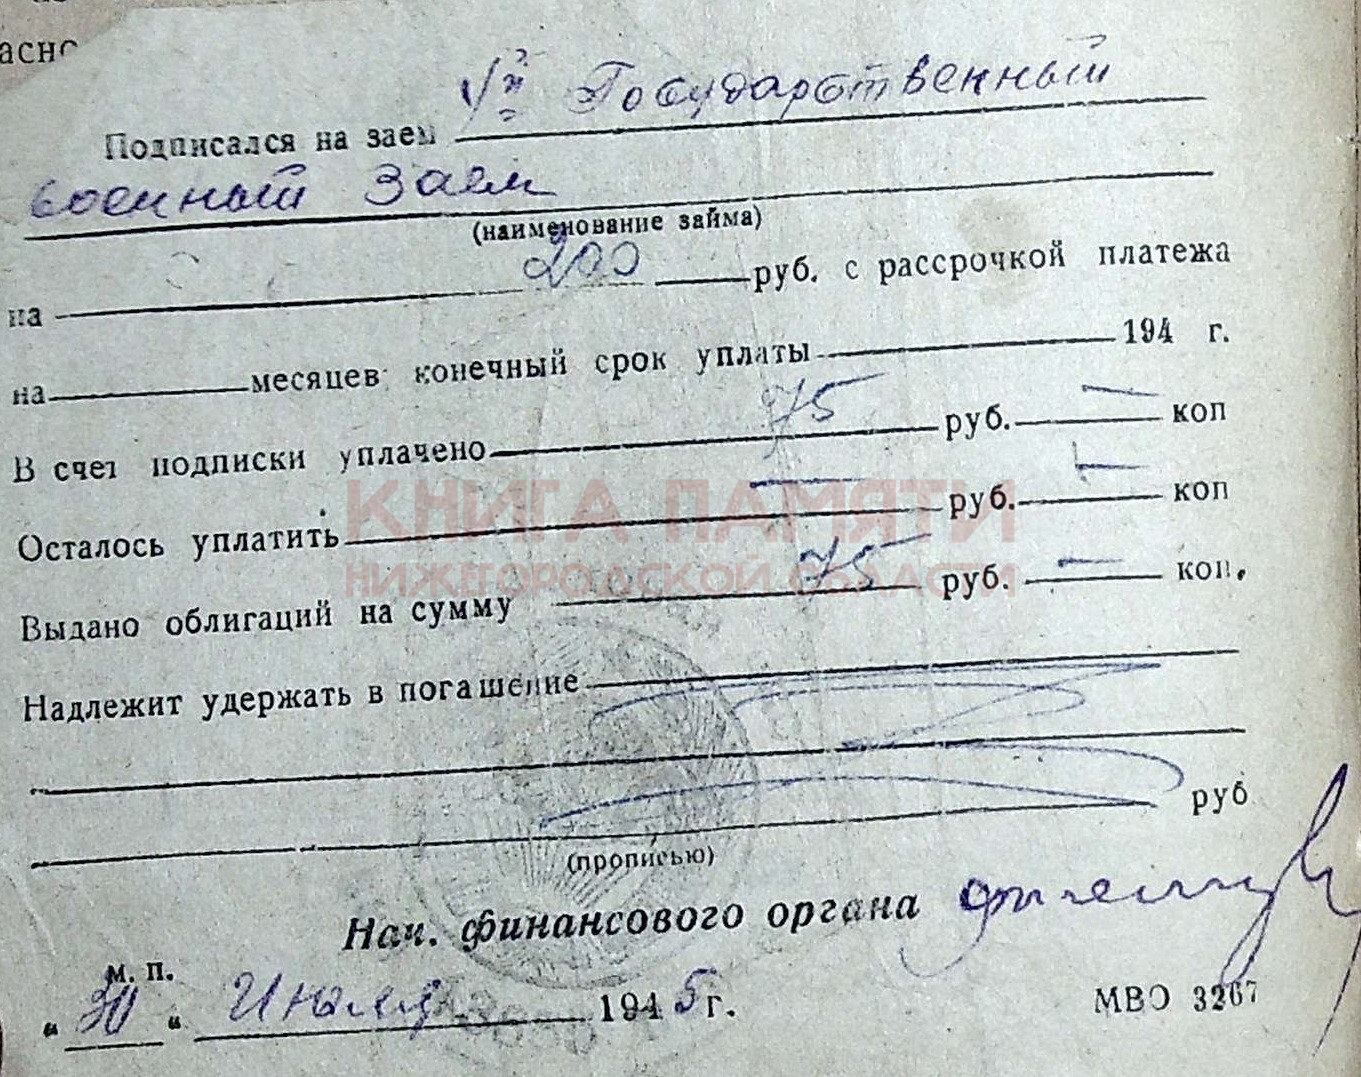 асно
Подписался на заем 4й Государственный
военный Заем
(наименование займа)
на 200 руб. с рассрочкой платежа
на месяцев конечный срок уплаты 194 г.
В счет подписки уплачено 75 руб. — коп
КНИГА ПАМЯТИ
Осталось уплатить — руб. — коп
НИЖЕГОРОДСКОЙ ОБЛАСТИ
Выдано облигаций на сумму 75 руб. — коп.
Надлежит удержать в погашение
руб
(прописью)
Нач. финансового органа
м. п.
„30“ Июля 1945 г.
МВО 3267